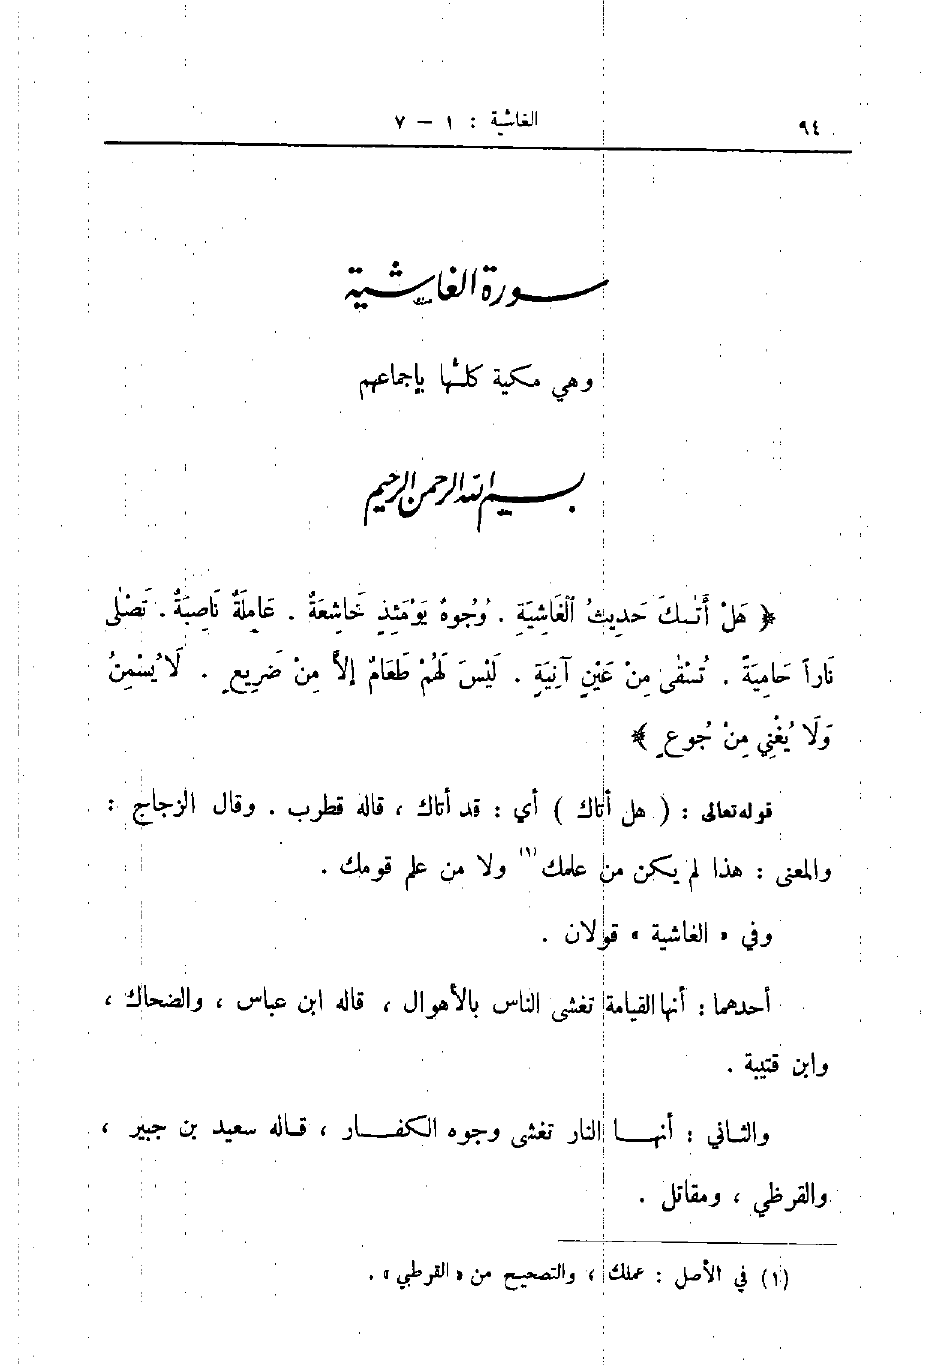 ٩٤ الغاشية : ١ — ٧
سورة الغاشية
وهي مكية كلّها بإجماعهم
بسم الله الرحمن الرحيم
﴿ هَلْ أَتٰـكَ حَدِيثُ الْغَاشِيَةِ . وُجُوهٌ يَوْمَئِذٍ خَاشِعَةٌ . عَامِلَةٌ نَاصِبَةٌ . تَصْلٰى
نَاراً حَامِيَةً . تُسْقٰى مِنْ عَيْنٍ آنِيَةٍ . لَيْسَ لَهُمْ طَعَامٌ إلاَّ مِنْ ضَرِيعٍ . لَا يُسْمِنُ
وَلَا يُغْنِي مِنْ جُوعٍ ﴾
قوله تعالى : ( هل أتاك ) أي : قد أتاك ، قاله قطرب . وقال الزجاج :
والمعنى : هذا لم يكن من علمك (١) ولا من علم قومك .
وفي « الغاشية » قولان .
أحدهما : أنها القيامة تغشى الناس بالأهوال ، قاله ابن عباس ، والضحاك ،
وابن قتيبة .
والثـاني : أنهـــا النار تغشى وجوه الكفـــار ، قـاله سعيد بن جبير ،
والقرظي ، ومقاتل .
(١) في الأصل : عملك ، والتصحيح من « القرطبي » .